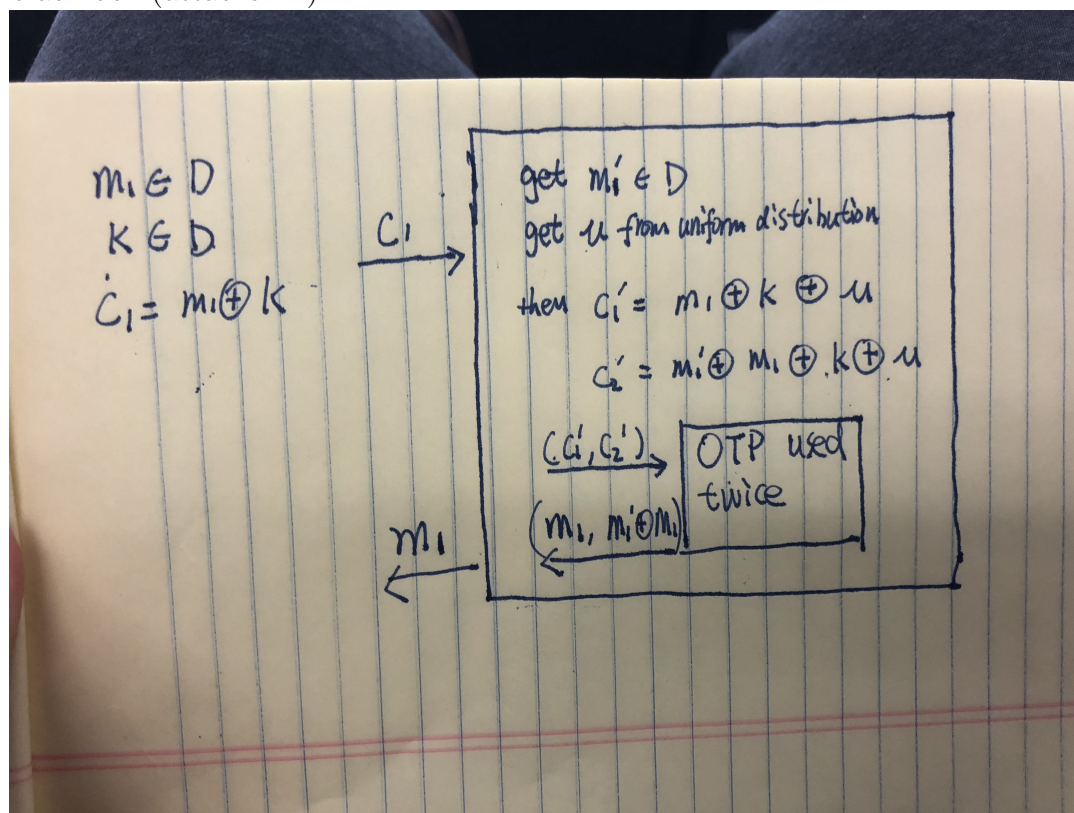 m₁ ∈ D
k ∈ D
C₁ = m₁ ⊕ k
C₁
m₁
get m₁' ∈ D
get u from uniform distribution
then C₁' = m₁ ⊕ k ⊕ u
C₂' = m₁' ⊕ m₁ ⊕ k ⊕ u
(C₁', C₂')
OTP used
twice
(m₁, m₁' ⊕ m₁)